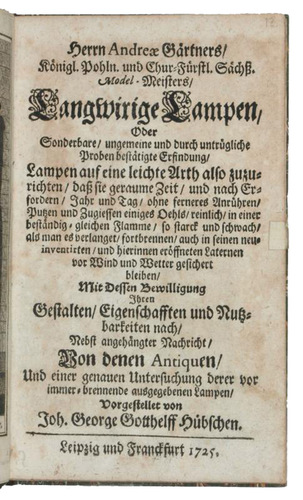 12
Herrn Andreæ Gärtners/
Königl. Pohln. und Chur-Fürstl. Sächß.
Model-Meisters/
Langwirige Lampen/
Oder
Sonderbare/ ungemeine und durch untrügliche
Proben bestätigte Erfindung/
Lampen auf eine leichte Arth also zuzu-
richten/ daß sie geraume Zeit/ und nach Er-
fordern/ Jahr und Tag/ ohne ferneres Anrühren/
Putzen und Zugiessen einiges Oehls/ reinlich/ in einer
beständig-gleichen Flamme/ so starck und schwach/
als man es verlanget/ fortbrennen/ auch in seinen neu-
inventirten/ und hierinnen eröffneten Laternen
vor Wind und Wetter gesichert
bleiben/
Mit Dessen Bewilligung
Ihren
Gestalten/ Eigenschafften und Nutz-
barkeiten nach/
Nebst angehängter Nachricht/
Von denen Antiquen/
Und einer genauen Untersuchung derer vor
immer-brennende ausgegebenen Lampen/
Vorgestellet von
Joh. George Gotthelff Hübschen.
Leipzig und Franckfurt 1725.